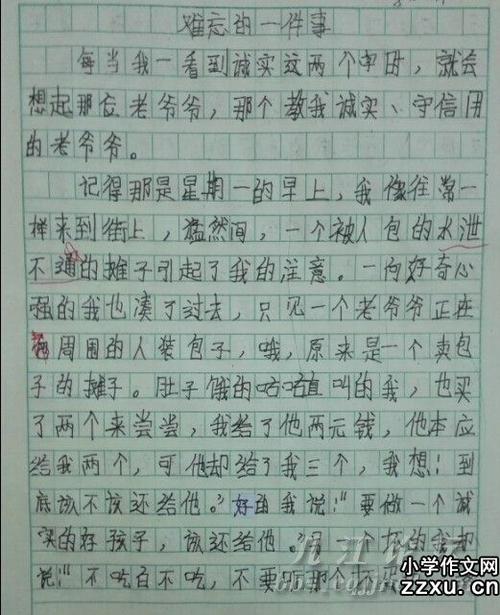 难忘的一件事
每当我一看到诚实这两个字时，就会
想起那位老爷爷，那个教我诚实、守信用
的老爷爷。
记得那是星期一的早上，我像往常一
样来到街上，猛然间，一个被人包的水泄
不通的摊子引起了我的注意。一向好奇心
强的我也凑了过去，只见一个老爷爷正在
周围的人装包子，哦，原来是一个卖包
子的摊子。肚子饿的咕咕直叫的我，也买
了两个来尝尝，我给了他两元钱，他本应
给我两个，可他却给了我三个，我想！到
底该不该还给他。”好的我说！“要做一个诚
实的好孩子，该还给他。”另一个坏的舍却
说！“不吃白不吃，不要
小学作文网
zzxu.cn